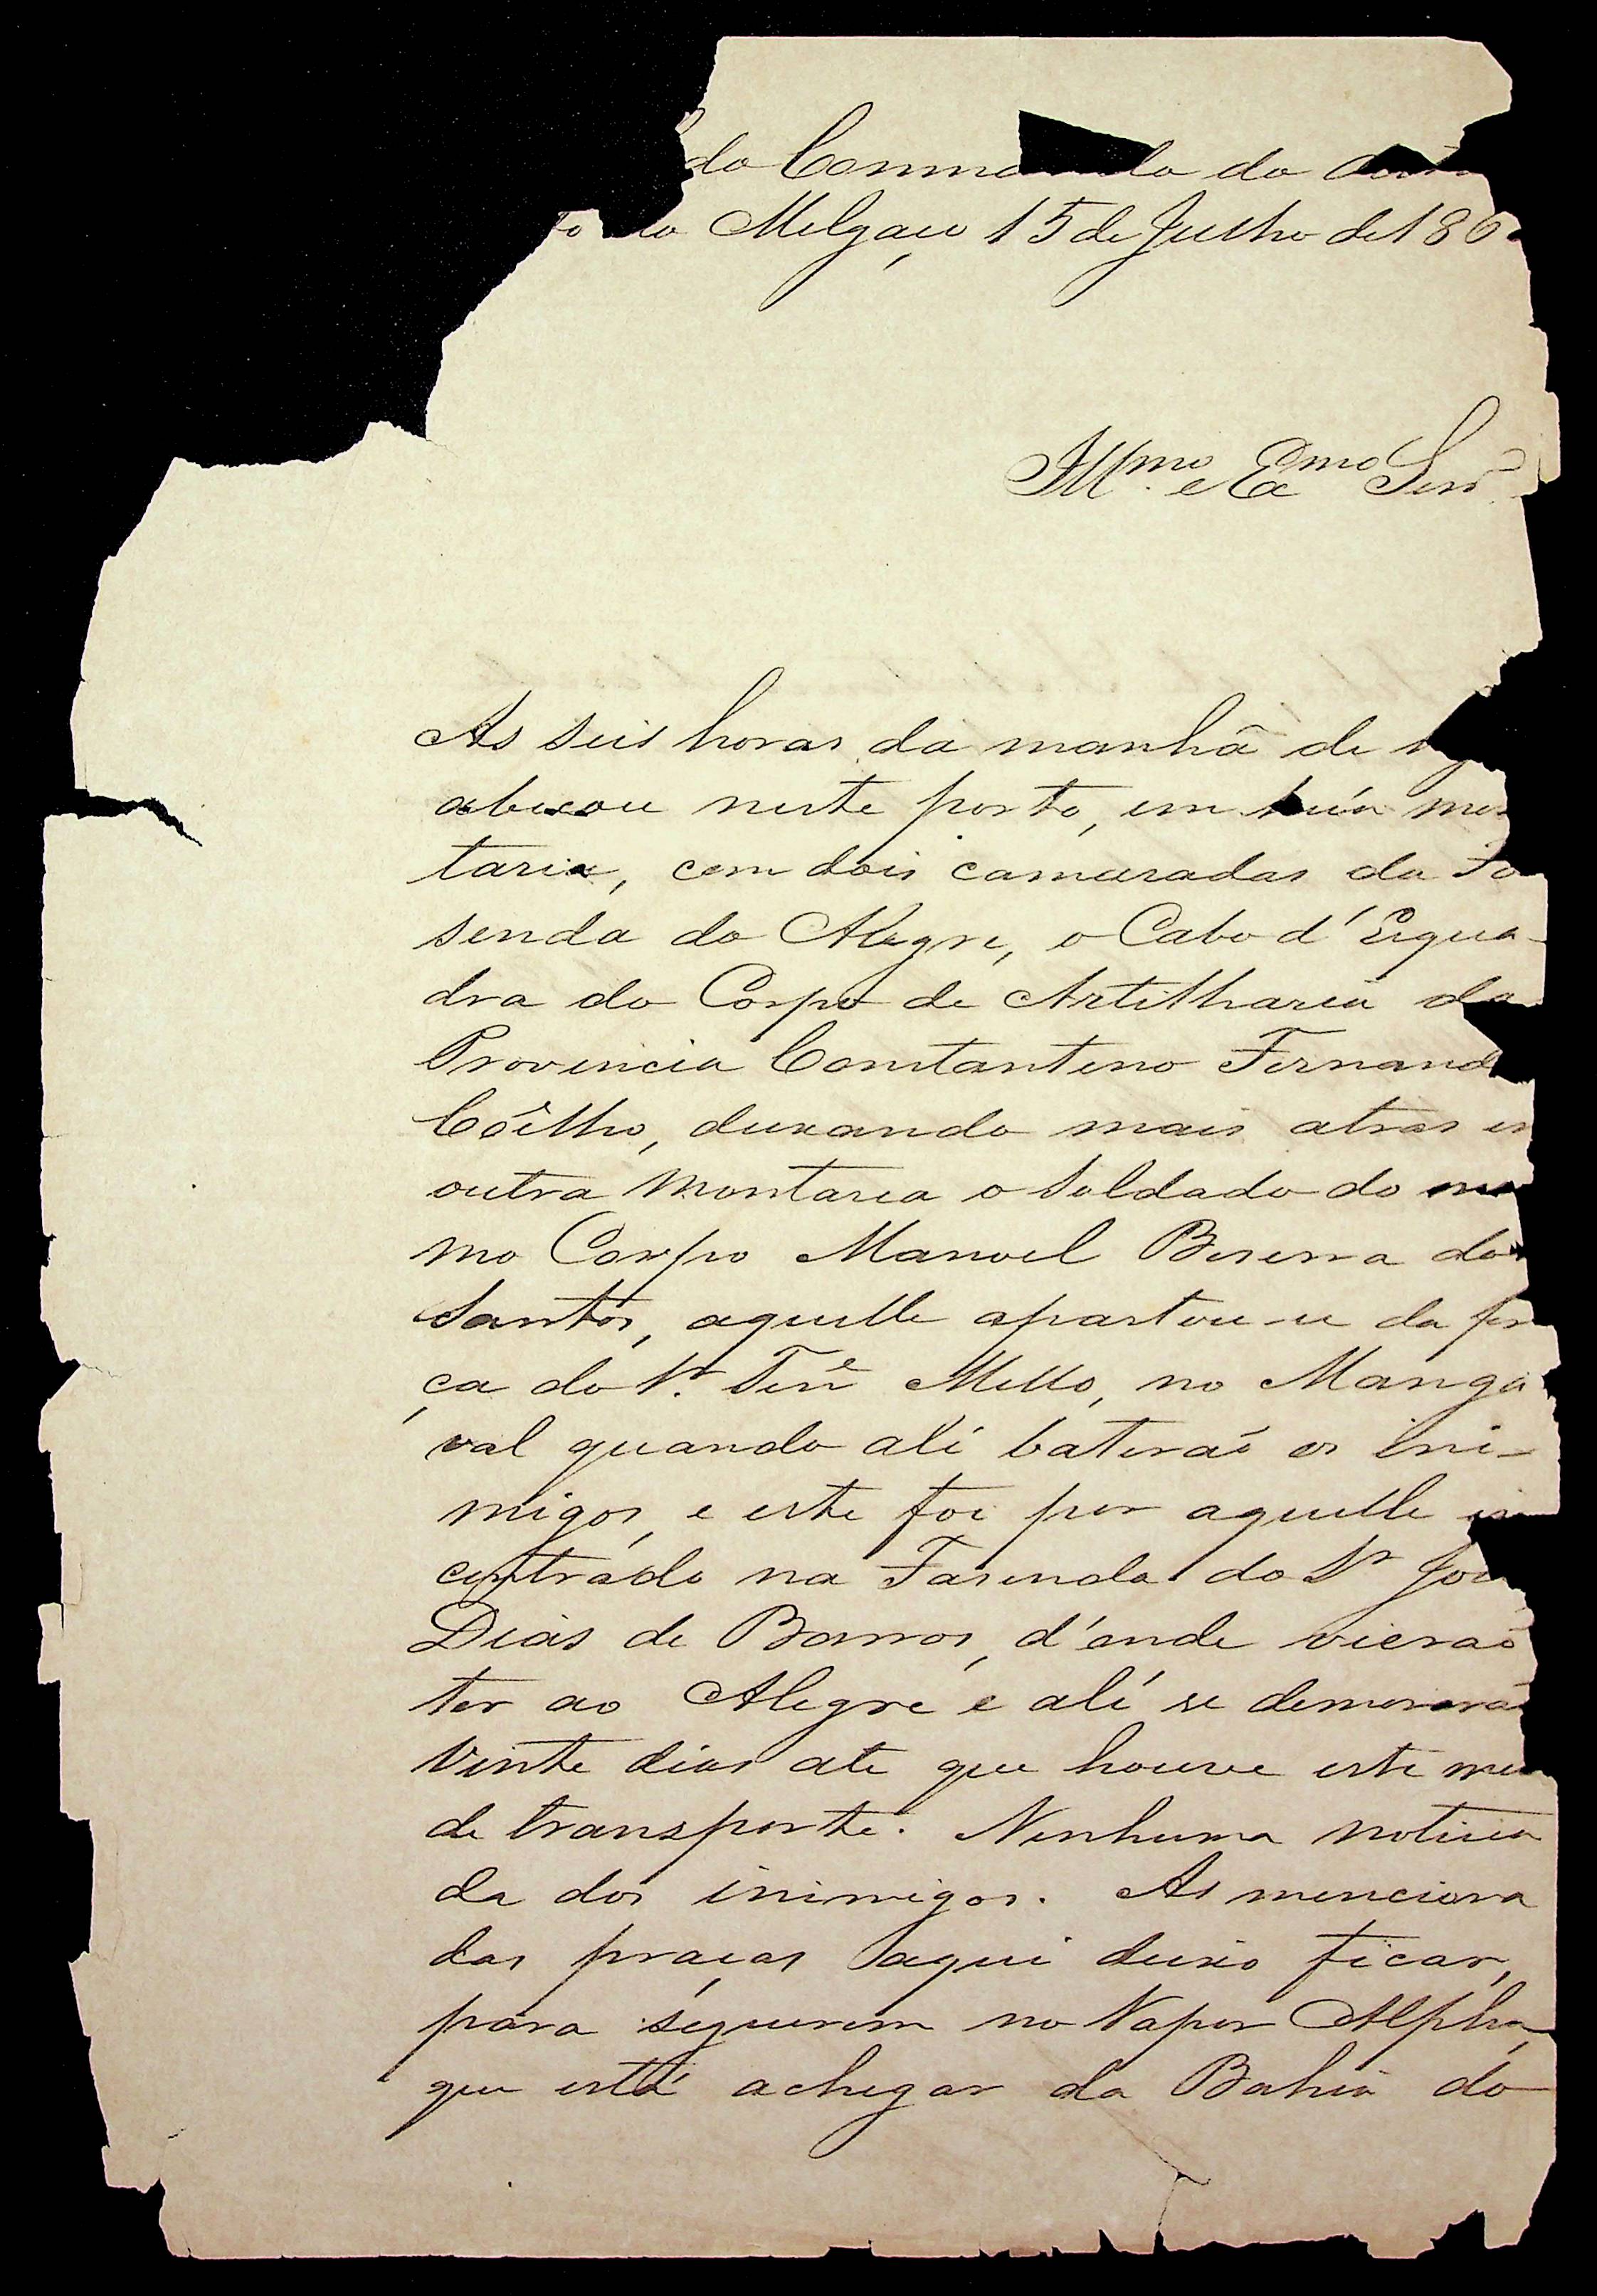 do Comma do do
Melgaço 15 de Julho de 186
Illmo. e Exmo Senr.
As seis horas da manhã de
abicou neste porto, em húa mon
taria, com dois camaradas da Fa
senda do Alegre, o Cabo d'Esqua-
dra do Corpo de Artilharia da
Provincia Constantino Fernand
Coêlho, deixando mais atras em
outra montaria o Soldado do mes
mo Corpo Manoel Beserra dos
Santos, aquelle apartou-se da for
ça do Sr. Tene Mello, no Manga
val quando ali baterão os ini-
migos, e este foi por aquelle en
contrado na Fasenda do Sr José
Dias de Barros, d'onde vierão
ter ao Alegre e alí se demorarã
vinte dias ate que houve este mei
de transporte. Nenhuma noticia
da dos inimigos. As menciona
das praças aqui deixo ficar,
para seguirem no Vapor Alpha,
que está achegar da Bahia do